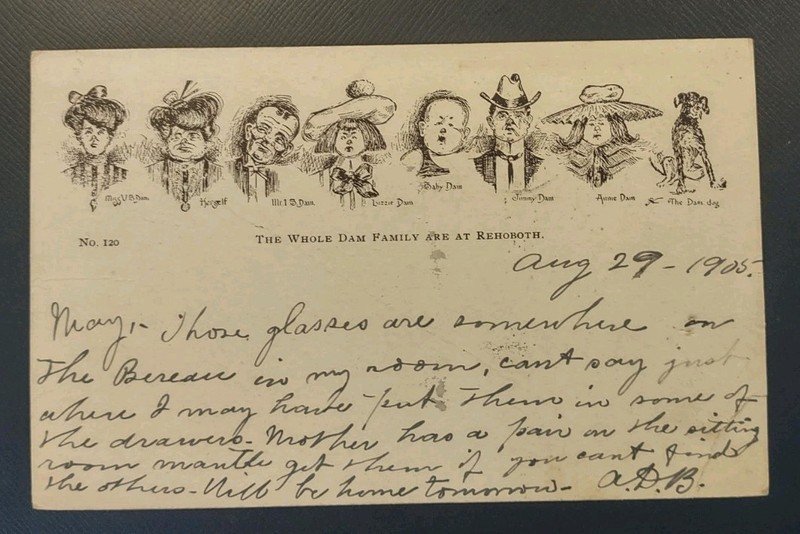 Miss U.B. Dam. Herself Mr. I.B. Dam. Lizzie Dam Baby Dam Jimmy Dam Annie Dam The Dam dog
No. 120 THE WHOLE DAM FAMILY ARE AT REHOBOTH.
Aug 29 - 1905.
May,- Those glasses are somewhere on
the Bereau in my room, cant say just
where I may have put them in some of
the drawers- Mother has a pair on the sitting
room mantle get them if you cant find
the others- Will be home tomorrow- A.D.B.